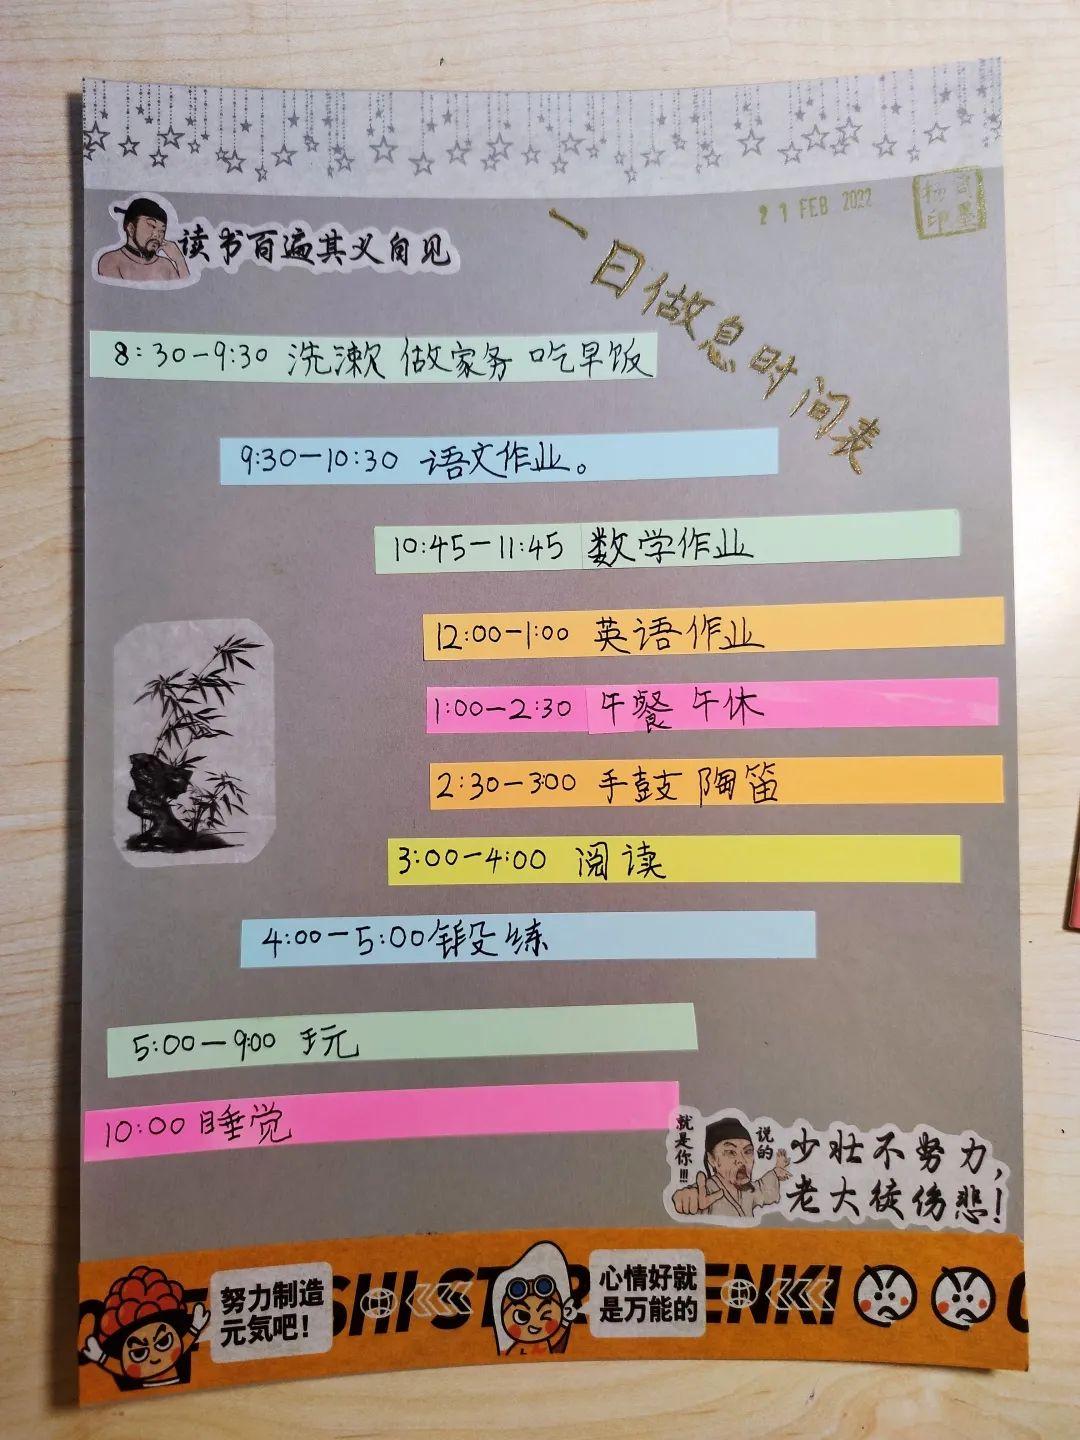 读书百遍其义自见
21 FEB 2022
一日做息时间表
8:30-9:30 洗漱 做家务 吃早饭
9:30-10:30 语文作业。
10:45-11:45 数学作业
12:00-1:00 英语作业
1:00-2:30 午餐 午休
2:30-3:00 手鼓 陶笛
3:00-4:00 阅读
4:00-5:00 锻练
5:00-9:00 玩
10:00 睡觉
就是你!!!
说的
少壮不努力,
老大徒伤悲!
努力制造
元気吧!
心情好就
是万能的
SHI-ST
ENKI